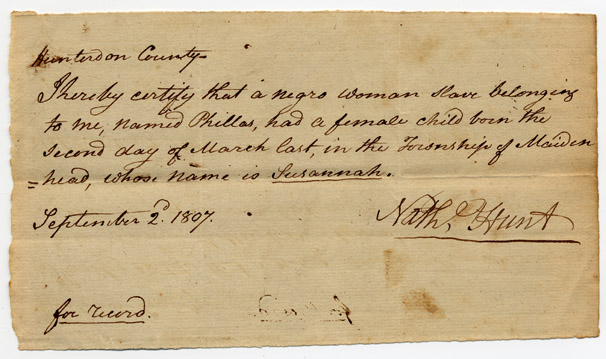 Hunterdon County
I hereby certify that a negro woman slave belonging
to me, named Phillas, had a female child born the
Second day of March last, in the Township of Maiden
=head, whose name is Susannah.
September 2d. 1807.
Nathl. Hunt
for record.